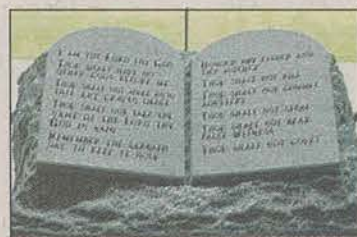 I AM THE LORD THY GOD
THOU SHALT NOT
OTHER GODS BEFORE ME
THOU SHALT NOT MAKE
GRAVEN IMAGE
THOU SHALT NOT TAKE THE
NAME OF THE LORD THY
GOD IN VAIN
REMEMBER THE SABBATH
DAY TO KEEP IT HOLY
HONOUR THY FATHER AND
THY MOTHER
THOU SHALT NOT KILL
THOU SHALT NOT COMMIT
ADULTERY
THOU SHALT NOT STEAL
THOU SHALT NOT BEAR
WITNESS
THOU SHALT NOT COVET